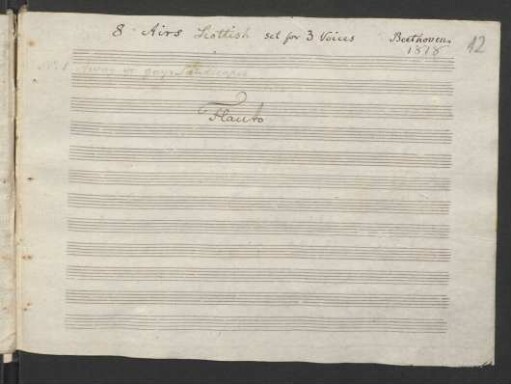 8 Airs Scottish set for 3 Voices Beethoven
1818 12
Flauto